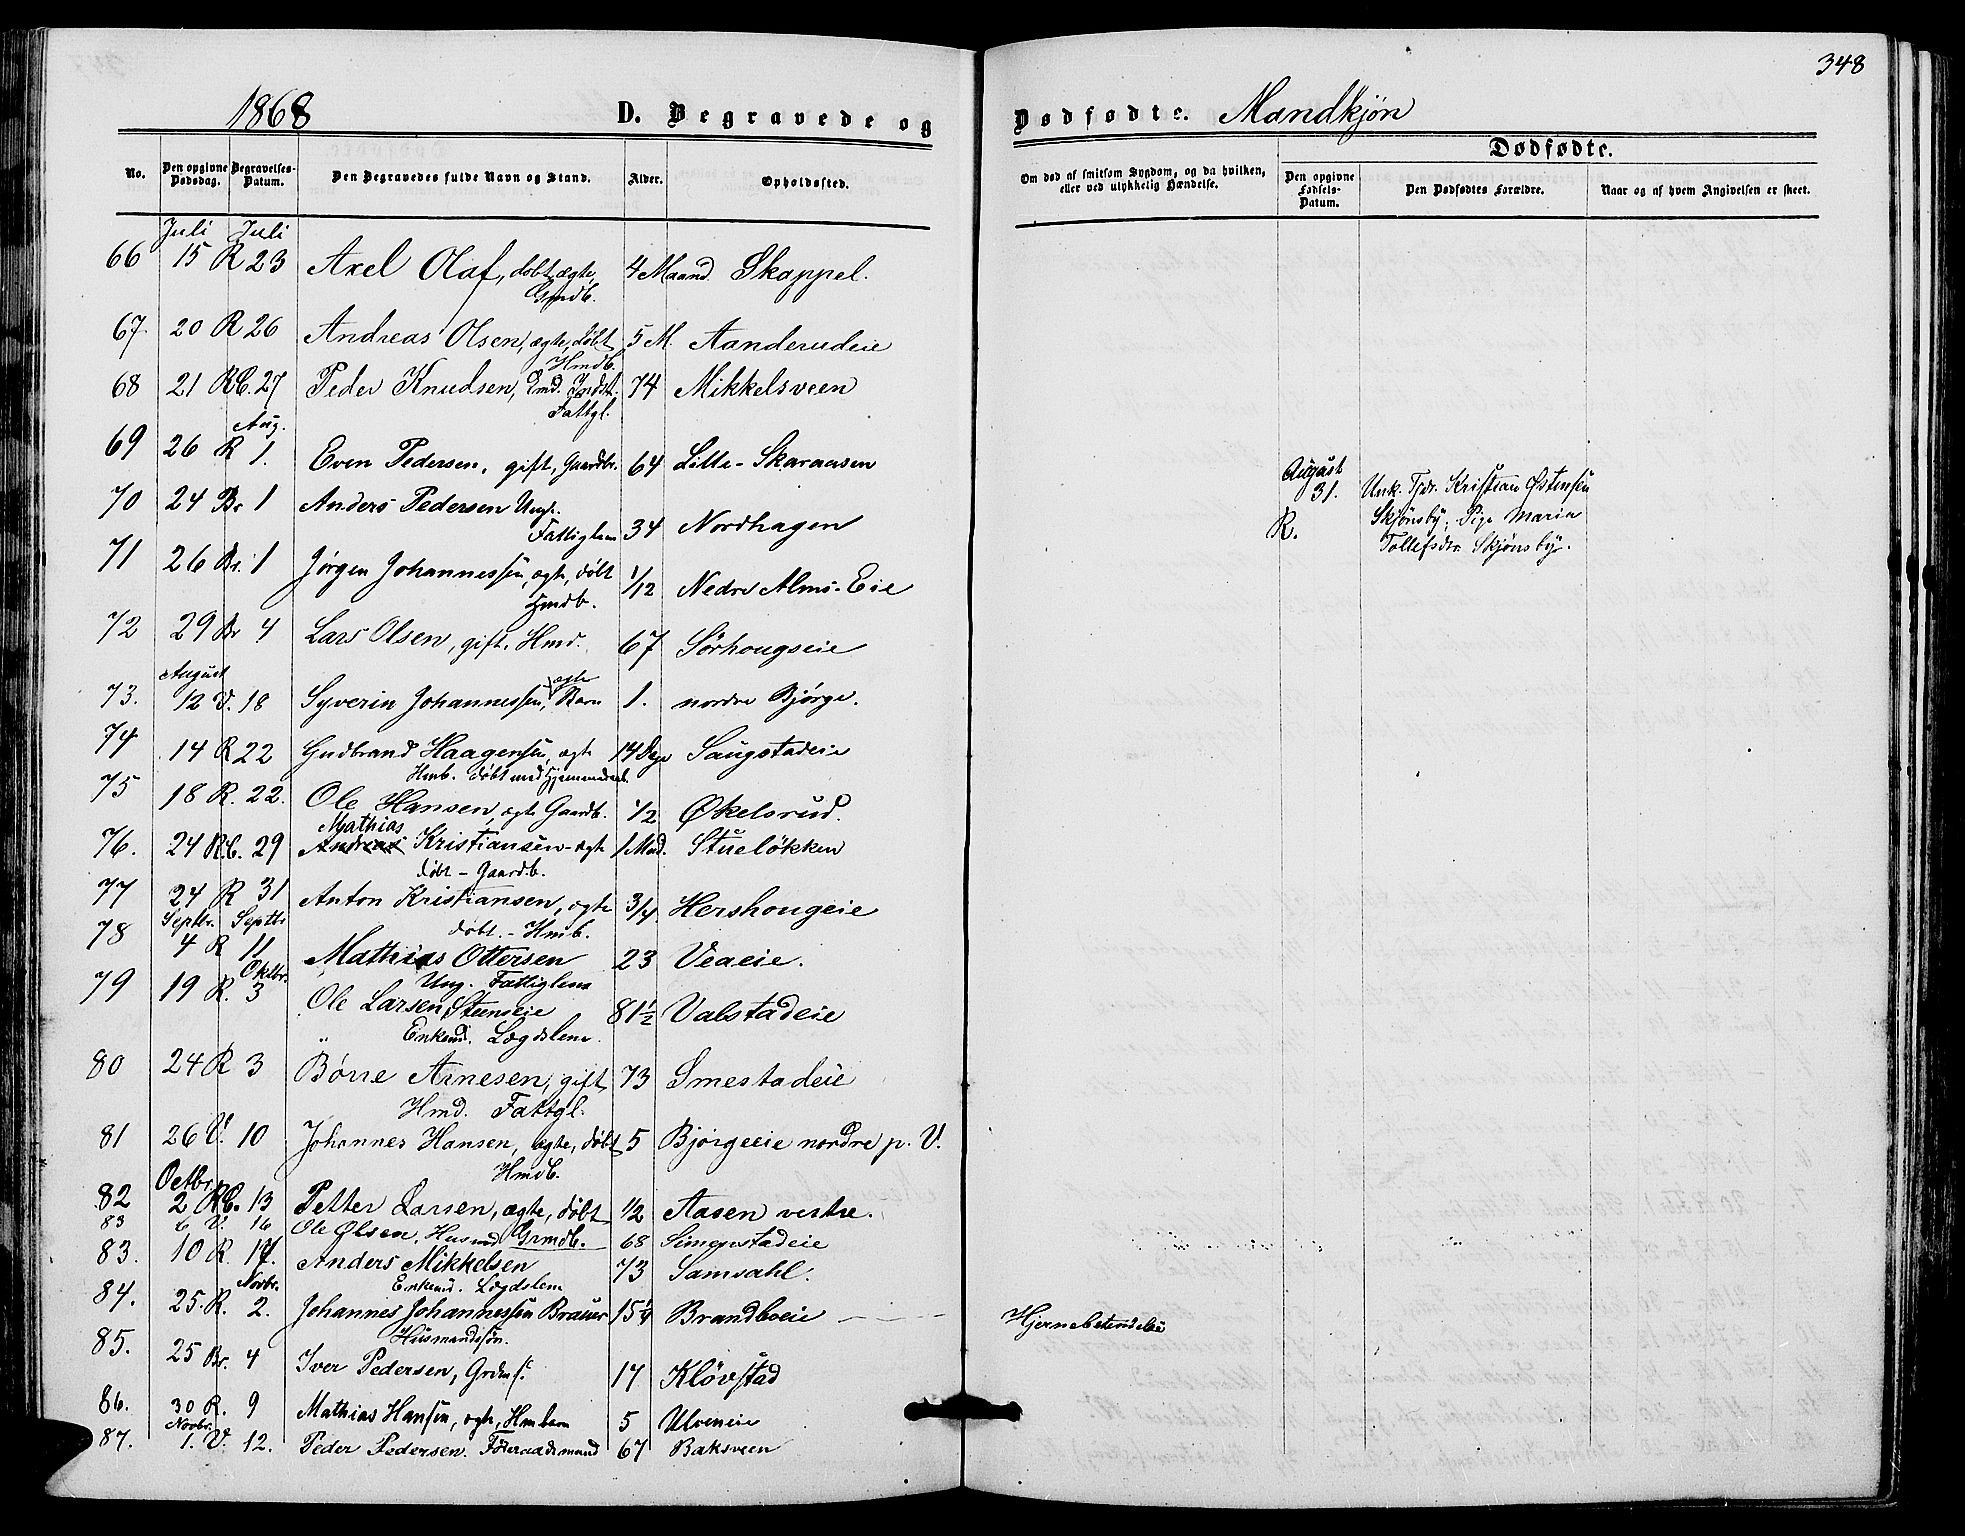 348
1868 D. Begravede og Dødfødte. Mandkjøn
Dødfødte.
No. Den opgivne Dødsdag. Begravelses-Datum. Den Begravedes fulde Navn og Stand. Alder. Opholdssted. Om død af smitsom Sygdom, og da hvilken, eller ved ulykkelig Hændelse. Den opgivne Fødsels-Datum. Den Dødfødtes Forældre. Naar og af hvem Angivelsen er skeet.
Juli Juli
66 15 R 23 Axel Olaf, døbt, ægte, 4 Maand. Skappel.
Gmdb.
67. 20 R 26 Andreas Olsen, ægte, døbt 5 M. Aanderudeie
Hmdb.
68 21 RC. 27 Peder Knudsen, Emd. Indst. 74 Mikkelsveen
Fattgl.
Aug.
69 26 R 1. Even Pedersen, gift, Gaardbr. 64 Lille-Skaraasen
70 24 Br 1 Anders Pedersen Ungk.
Fattiglem 34 Nordhagen
71 26 Br. 1 Jørgen Johannessen, ægte, døbt 1/12 Nedre Alms-Eie
Hmdb.
72 29 Br 4 Lars Olsen, gift. Hmd. 67 Sørhougseie
August
73. 12 V. 18 Syverin Johannessen, ægte Barn 1. nordre Bjørge.
74 14 R 22 Gudbrand Haagensen, ægte 14 Dge Saugstadeie
Hmb. døbt med Hjemmedaab.
75 18 R. 22. Ole Hansen, ægte Gaardb. 1/2 Økelsrud.
Mathias
76. 24 RC. 29 Andreas Kristiansen - ægte 1 Mnd. Stueløkken
døbt - Gaardb.
77 24 R 31 Anton Kristiansen, ægte 3/4 Hershougeie
døbt. - Hmb.
Septbr. Septbr
78 4 R 11 Mathias Ottersen 23 Veaeie.
Ung. Fattiglem
Oktbr.
79 19 R. 3 Ole Larsen Steenseie 81 1/2 Valstadeie
Enkemd. Lægdslem
80 24 R 3 Børre Arnesen, gift, 73 Smestadeie
Hmd. Fattgl.
81 26 V. 10 Johannes Hansen, ægte, døbt 5 Bjørgeeie nordre p. V.
Hmdb.
Octbr.
82 2 RC. 13 Petter Larsen, ægte, døbt 1/2 Aasen vestre.
Grmdb.
83 6 V. 16 Ole Olsen, Husmd 68 Simenstadeie
83. 10 R. 17. Anders Mikkelsen 73 Samsahl.
Enkemd. Lægdslem
Novbr.
84. 25. R. 2. Johannes Johannessen Brauer 15 1/4 Brandboeie Hjernebetendelse
Husmandssøn.
85. 25 Br. 4 Iver Pedersen, Grdms. 17 Kløvstad
86. 30 R. 9 Mathias Hansen, ægte, Hmbarn 5 Ulveneie
Novbr.
87. 1. V. 12. Peder Pedersen. Føderaadsmand 67 Baksveen
August
31. Unk. Tjdr. Kristian Østensen
R. Skjønsby, Pige Maria
Tollefsdr. Skjønsby.